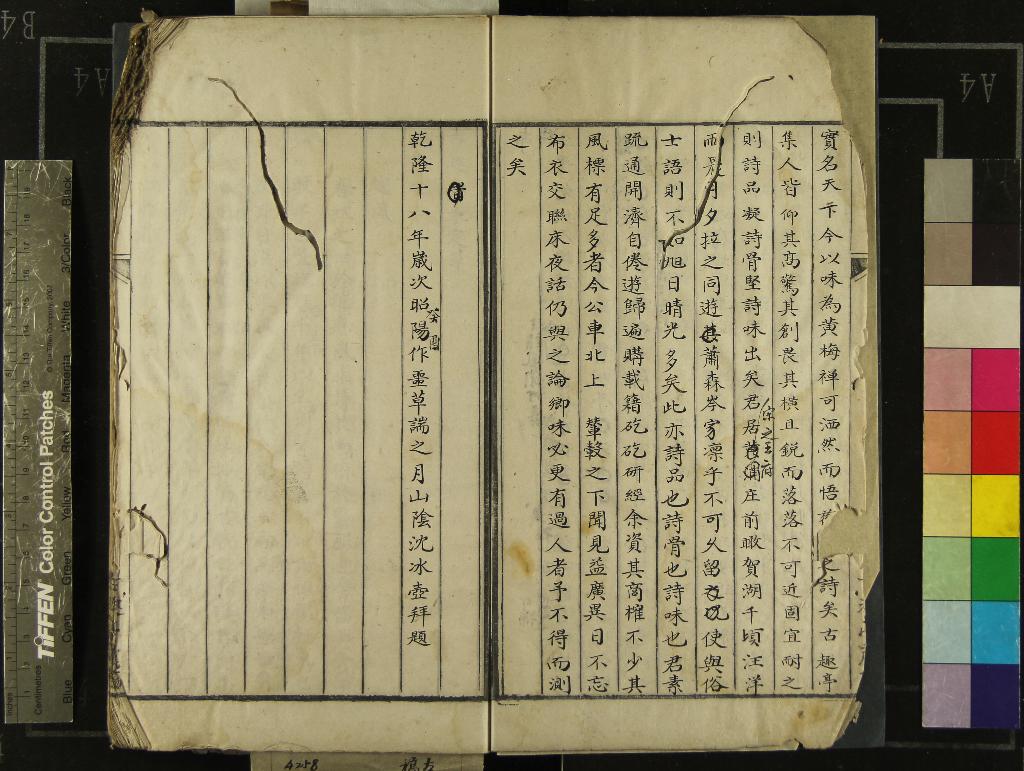 實名天下今以味為黃梅禪可洒然而悟 詩矣古趣亭
集人皆仰其高驚其創畏其橫且銳而落落不可近固宜耐之
則詩品凝詩骨堅詩味出矣君居 庄前瞰賀湖千頃汪洋
宋之王府
而 月夕拉之同遊 蕭森岑寂凜乎不可久留 使與俗
士語則不知旭日晴光多矣此亦詩品也詩骨也詩味也君素
疏通開濟自倦遊歸遍購載籍矻矻研經余資其商榷不少其
風標有足多者今公車北上 輦轂之下聞見益廣異日不忘
布衣交聯床夜話仍與之論鄉味必更有過人者予不得而測
之矣
乾隆十八年歲次昭陽作噩草端之月山陰沈冰壺拜題
癸酉
TIFFEN Color Control Patches
© The Tiffen Company, 2007
Centimetres
Inches
Blue
Cyan
Green
Yellow
Red
Magenta
White
3/Color
Black
B4
A4
A4
4258